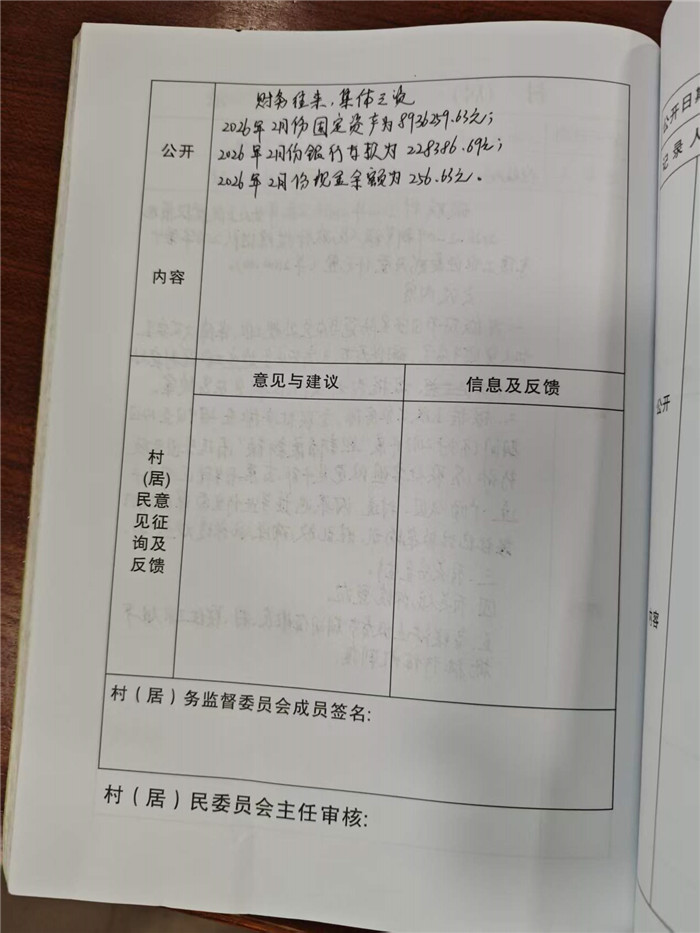 财务往来、集体之资
2026年2月份固定资产为8936259.63元；
2026年2月份银行存款为228386.69元；
2026年2月份现金余额为256.63元。
公开
内容
意见与建议
信息及反馈
村
(居)
民意
见征
询及
反馈
村（居）务监督委员会成员签名:
村（居）民委员会主任审核:
公开日期
记录人
公开
内容